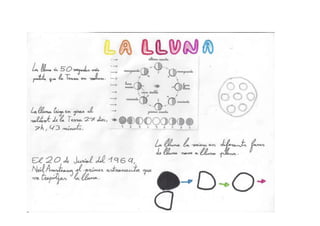 LA LLUNA
La lluna és 50 vegades més
petita que la Terra en volum.
La lluna triga en girar al
voltant de la Terra 27 dies,
7h, 43 minuts.
La lluna la veiem en diferents fases
de lluna nova a lluna plena.
El 20 de Juriol del 1969,
Neil Armstrong el primer astronauta que
va trepitjar la lluna.